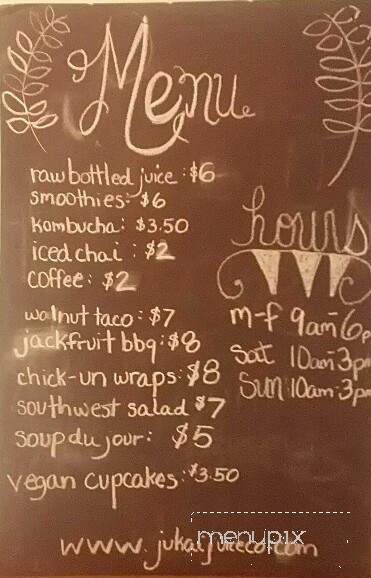 Menu
raw bottled juice: $6
smoothies: $6
kombucha: $3.50
iced chai: $2
coffee: $2
walnut taco: $7
jackfruit bbq: $8
chick-un wraps: $8
southwest salad $7
soup du jour: $5
vegan cupcakes: $3.50
hours
m-f 9am-6p
Sat 10am-3pm
Sun: 10am-3pm
menupix
www.jukaijuiceco.com